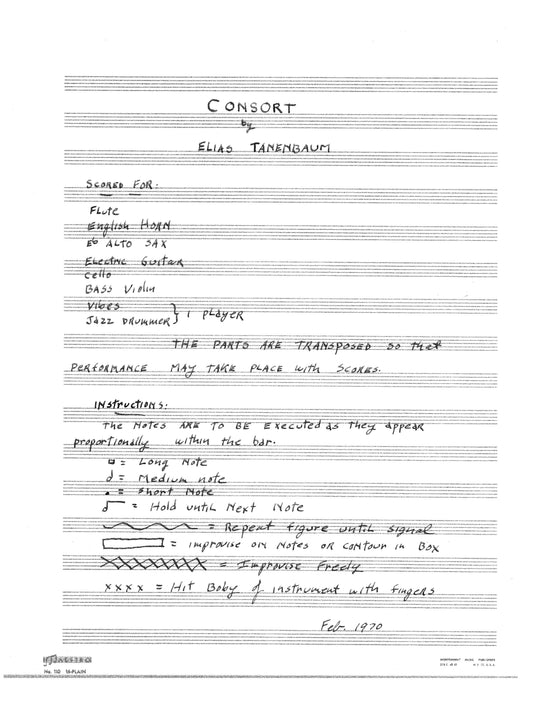 CONSORT
by
ELIAS TANENBAUM
SCORED FOR:
Flute
English HORN
Eb ALTO SAX
Electric Guitar
Cello
BASS Violin
Vibes
JAZZ DRUMMER } 1 PLAYER
THE PARTS ARE TRANSPOSED SO that
PERFORMANCE MAY TAKE PLACE with SCORES.
INStructIONS:
the Notes ARE TO BE Executed as they appear
proportionally within the bar.
= Long Note
= Medium note
= Short Note
= Hold until Next Note
= Repeat figure until signal
= improvise on Notes or contour in Box
= Improvise Freely
xxxx = Hit Boby of instrument with fingers
Feb. 1970
No. 110 16-PLAIN